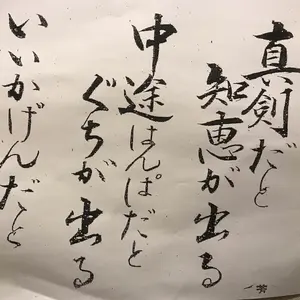 真剣だと
知恵が出る
中途はんぱだと
ぐちが出る
いいかげんだと